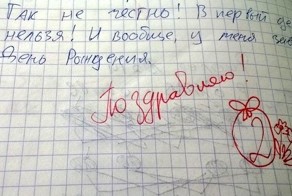 Так не честно! В первый де
нельзя! И вообще, у меня зав
День Рождения.
Поздравляю!
2